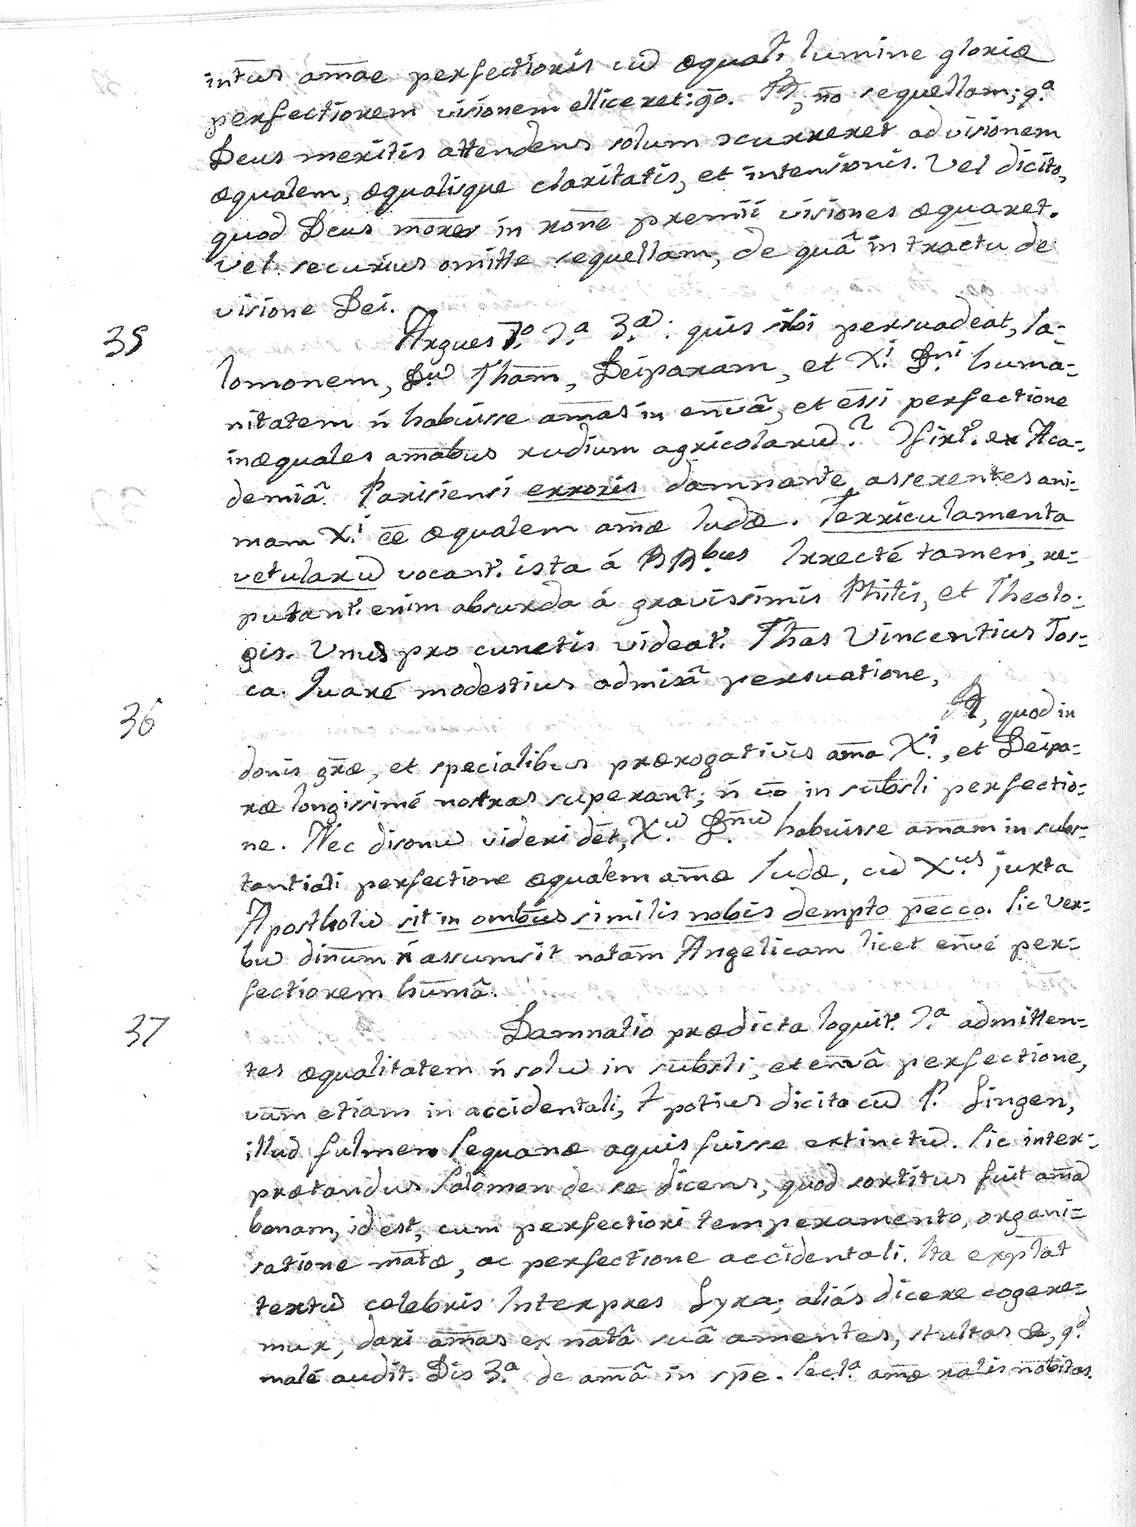 intus am̄ae perfectioris cū æquali lumine gloriæ
perfectiorem visionem elliceret: g̃o. R, nō sequellam; q.ª
Deus meritis attendens solum curreret ad visionem
æqualem, æqualisque claritatis, et intensionis. Vel dicito,
quod Deus in rōne premii visiones æquaret.
Vel securius omitte sequellam, de quâ in tractu de
visione Dei.
35 Argues 7.º 3.ª: quis sibi persuadeat, Sa-
lomonem, D.ū Thom̄, Deiparam, et X.i D.ni huma-
nitatem ñ habuisse am̄as in env̄â, et ess̄i perfectione
inæquales am̄abus rudium agricolarū? ex Aca-
demiâ Parisiensi erroris damnante asserentes ani-
mam X.i ēē æqualem am̄æ Iudæ. Terriculamenta
vetularū vocant. ista á RR.bus Irrecté tamen, re-
putant. enim absurda á gravissimis Philis, et Theolo-
gis. Unus pro cunctis videat. Thas Vincentius Tos-
ca. Quaré modestius admisâ persuatione,
36 R, quod in
donis grāæ, et specialibus prærogativis am̄a X.i, et Deipa-
ræ longissimé nostras superant; ñ v̄o in subsli perfectio-
ne. Nec disonū videri dēt, X.ū D.nū habuisse am̄am in subs-
tantiali perfectione æqualem am̄æ Iudæ, cū X.us juxta
Apostholū sit in omb̄us similis nobis dempto pecco. Sic Ver-
bū din̄um ñ assumsit natam̄ Angelicam licet env̄é per-
fectiorem hum̄â.
37 Damnatio prædicta loquit. 7.ª admitten-
tes æqualitatem ñ solū in subsli, et env̄â perfectione,
vum̄ etiam in accidentali, t potius dicito cū P. Lingen,
illud fulmen Sequanæ aquis fuisse extinctū. Sic inter-
prætandus Salomon de se dicens, quod sortitus fuit am̄ā
bonam, id est, cum perfectiori temperamento, organi-
satione mat̄æ, ac perfectione accidentali. Ita explat
textū celebris Interpres Lyra; aliás dicere cogere-
mur, dari am̄as ex nat̄â suâ amentes, stultas &, q.d
malé audit. Dis 3.ª de am̄â in spe. Sect.ª am̄æ ralis nobitas.